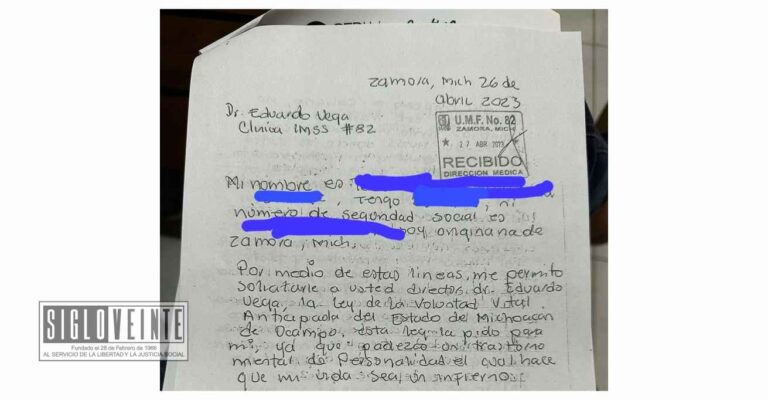 Zamora, Mich 26 de
abril 2023
Dr. Eduardo Vega
Clinica IMSS #82
U.M.F. No. 82
ZAMORA, MICH
27 ABR 2023
RECIBIDO
DIRECCION MEDICA
Mi nombre es
, Tengo
número de seguridad social es
soy originaria de
Zamora, Mich.
Por medio de estas lineas, me permito
solicitarle a usted director dr. Eduardo
Vega la Ley de la Voluntad Vital
Anticipada del Estado de Michoacan
de Ocampo, esta ley la pido para
mi, ya que padezco un trastorno
mental de Personalidad el cual hace
que mi vida sea un infierno
SIGLOVEINTE
Fundado el 28 de Febrero de 1966
AL SERVICIO DE LA LIBERTAD Y LA JUSTICIA SOCIAL